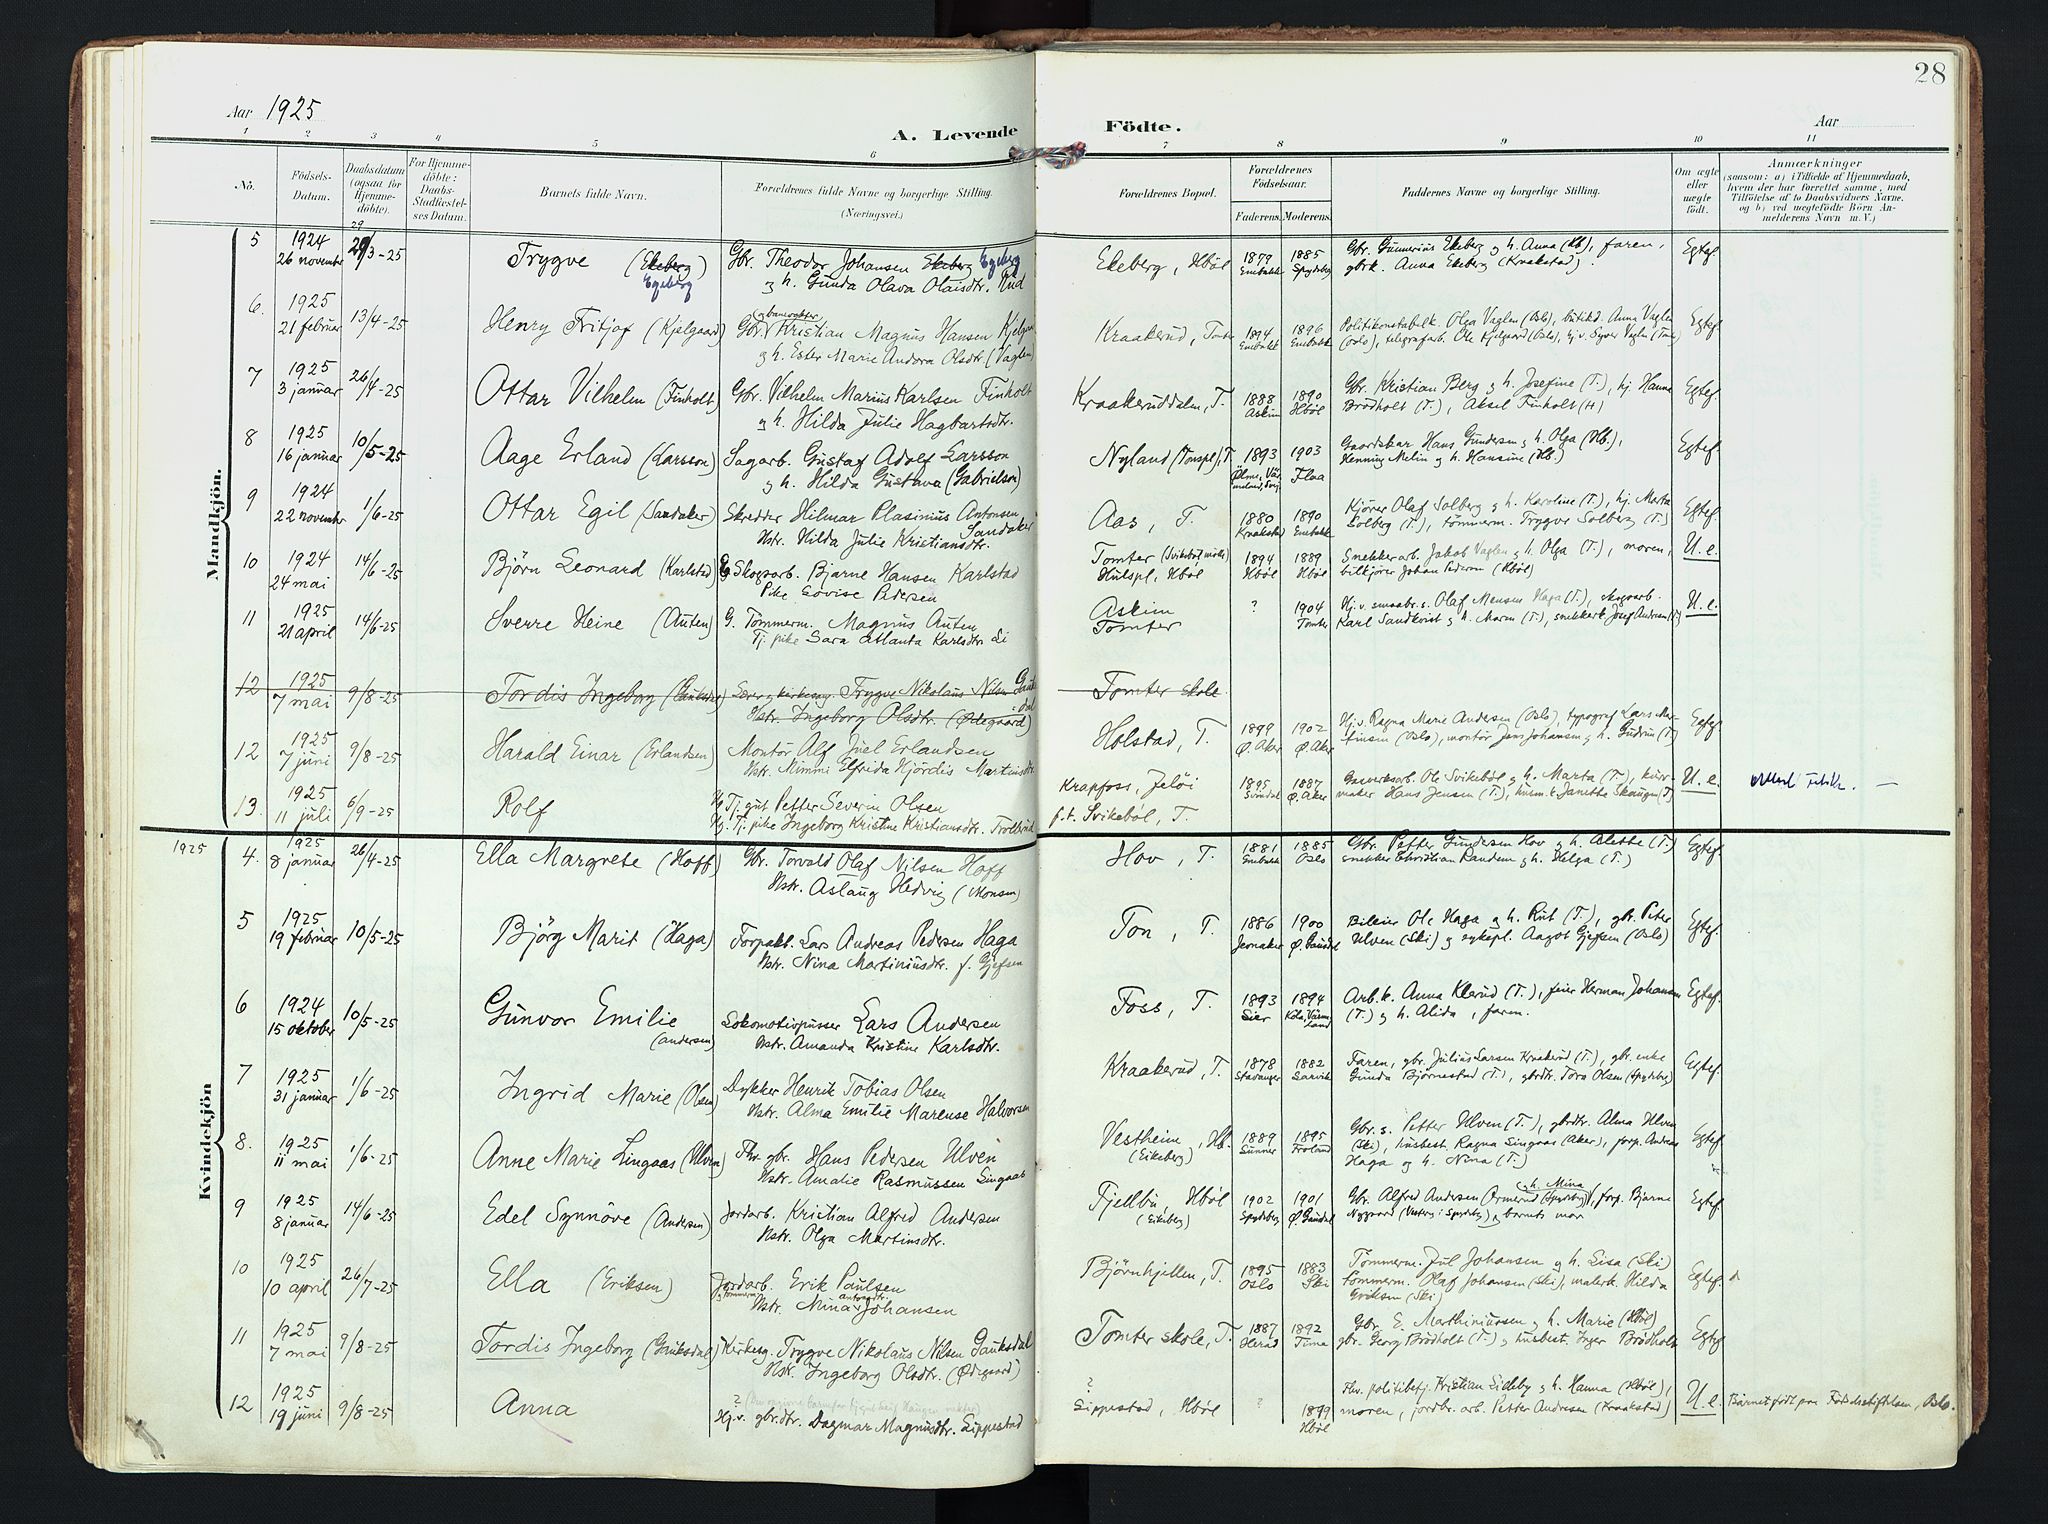 28
Aar 1925
A. Levende Födte.
Aar
1 2 3 4 5 6 7 8 9 10 11
No.
Födsels-Datum.
Daabsdatum (ogsaa for Hjemme-döbte).
For Hjemme-döbte: Daabs-Stadfæstel-ses Datum.
Barnets fulde Navn.
Forældrenes fulde Navne og borgerlige Stilling. (Næringsvei.)
Forældrenes Bopæl.
Forældrenes Födselsaar.
Faderens. Moderens.
Faddernes Navne og borgerlige Stilling.
Om ægte eller uægte födt.
Anmærkninger
(saasom: a) i Tilfælde af Hjemmedaab, hvem der har forrettet samme, med Tilföielse af to Daabsvidners Navne. og b) ved uægtefödte Börn An-melderens Navn m. V.)
Mandkjön.
5 1924 26 november 29/3-25 Trygve (Ekeberg) Egeberg Gbr. Theodor Johansen Ekeberg Egeberg
og h. Gunda Olava Olaisdtr. Rud
Ekeberg, Hböl 1879 Enebakk 1885 Spydeberg Gbr. Gunnerius Ekeberg og h. Anna (Hb), faren, Egtef.
gbrk. Anna Ekeberg (Kraakstad).
6. 1925 21 februar 13/4-25 Henry Fritjof (Kjelgaard) Gbr. Kristian Magnus Hansen
og h. Ester Marie Andora Olsdtr. (Vaglen)
Kraakerud, Tomter 1894 Enebakk 1896 Enebakk Politikonstabelk. Olga Vaglen (Oslo), butikd. Anna Vaglen Egtef.
(Oslo), telegrafarb. Ole Kjelgaard (Oslo), hj. v. Syver Vaglen
7 1925 3 januar 26/4-25 Ottar Vilhelm (Finholt) Gbr. Vilhelm Marius Karlsen Finholt
og h. Hilda Julie Hagbartsdtr.
Kraakeruddalen, T. 1888 Askim 1890 Hböl Gbr. Kristian Berg og h. Josefine (T.), hj. Hanna Egtef.
Brödholt (T.), Aksel Finholt (H)
8 1925 16 januar 10/5-25 Aage Erland (Larsson) Sagarb. Gustaf Adolf Larsson
og h. Hilda Gustava (Gabrielson)
Nyland (Tonspl), T. 1893 1903 Gaardskar Hans Gundersen og h. Olga (Hb.), Egtef.
Henning Melin og h. Hansine (Hb.)
9 1924 22 november 1/6-25 Ottar Egil (Sandaker) Skredder Hilmar Plasinius Antonsen Sandaker
Hstr. Hilda Julie Kristiansdtr.
Aas, T. 1880 Kraakstad 1890 Enebakk Kjörer Olaf Solberg og h. Karoline (T.), hj. Marta Egtef.
Solberg (T.), tömmerm. Trygve Solberg (T.)
10 1924 24 mai 14/6-25 Björn Leonard (Karlstad) Skogsarb. Bjarne Hansen Karlstad
Pike Lovise Pedersen
Tomter
Hulspl, Hböl 1894 Hböl 1889 Hböl Snekkerarb. Jakob Vaglen og h. Olga (T.), moren, U.e.
bilkjörer Johan Pedersen (Hböl)
11 1925 21 april 14/6-25 Sverre Heine (Auten) G. Tömmerm. Magnus Auten
Tj. pike Sara Atlanta Karlsdtr. Li
Askim
Tomter ? 1904 Tomter Hj. v. smaabr. s. Olaf Monsen Haga (T.), skogsarb. U.e.
Karl Sandkvist og h. Maren (T.), snekkerk Josef Andersen (T.)
12 1925 7 mai 9/8-25 Tordis Ingeborg (Gauksdal) Lærer og kirkesang. Trygve Nikolaus Nilsen Gauksdal
Hstr. Ingeborg Olsdtr. (Ödegaard)
Tomter skole
12 1925 7 juni 9/8-25 Harald Einar (Erlandsen) Montör Alf Juel Erlandsen
Hstr. Mimmi Elfrida Hjördis Martinsdtr.
Holstad, T. 1899 Ö. Aker 1902 Ö. Aker Hj. v. Ragna Marie Andersen (Oslo), typograf Lars Mar- Egtef.
tinsen (Oslo), montör Jens Johansen og h. Gudrun (T)
13. 1925 11 juli 6/9-25 Rolf Tj. gut Petter Severin Olsen
Tj. pike Ingeborg Kristine Kristiansdtr. Trolbrud
Krapfoss, Jelöi
f.t. Svikeböl, T. 1895 Svindal 1887 Ö. Aker Gasverksarb. Ole Svikeböl og h. Marta (T.), kurv- U.e.
maker Hans Jensen (T.), husm. k. Janette Skaugen (T)
Kvindekjön
1925
4. 1925 8 januar 26/4-25 Ella Margrete (Hoff) Gbr. Torvald Olaf Nilsen Hoff
Hstr. Aslaug Hedvig (Monsen)
Hov, T. 1881 Enebakk 1885 Oslo Gbr. Petter Gundersen Hov og h. Alette (T.) Egtef.
snekker Christian Randem og h. Helga (T.)
5 1925 19 februar 10/5-25 Björg Marit (Haga) Forpakt. Lars Andreas Pedersen Haga
Hstr. Nina Martiniusdtr. f. Gjefsen
Ton, T. 1886 Jevnaker 1900 Bileier Ole Haga og h. Rut (T.), gbr. Peter Egtef.
Ulven (Ski) og sykepl. Aagot Gjefsen (Oslo)
6 1924 15 oktober 10/5-25 Gunvor Emilie (Andersen) Lokomotivpusser Lars Andersen
Hstr. Amanda Kristine Karlsdtr.
Foss, T. 1893 1894 Köla, Värm-land Arb.k. Anna Klerud (T.), feier Herman Johansen Egtef.
(T.) og h. Alida, faren.
7 1925 31 januar 1/6-25 Ingrid Marie (Olsen) Dykker Henrik Tobias Olsen
Hstr. Alma Emilie Marense Halvorsen
Kraakerud, T. 1878 Stavanger 1882 Larvik Faren, gbr. Julius Larsen Kraakerud (T.), gbr. enke Egtef.
Gunda Björnestad (T.), gbrdtr. Tora Olsen (Spydeberg)
8. 1925 11 mai 1/6-25 Anne Marie Lingaas (Ulven) Fhv. gbr. Hans Pedersen Ulven
Hstr. Amalie Rasmussen Lingaas
Vestheim, Hb.
(Eikeberg) 1889 1895 Froland Gbr. s. Petter Ulven (T.), gbrdtr. Alma Ulven Egtef.
(Ski), husbest. Ragna Lingaas (Aker), forp. Andreas
Haga og h. Nina (T.)
9 1925 8 januar 14/6-25 Edel Synnöve (Andersen) Jordarb. Kristian Alfred Andersen
Hstr. Olga Martinsdtr.
Fjellbu, Hböl
(Eikeberg) 1902 Spydeberg 1901 Gbr. Alfred Andersen Ormerud og h. Mina (Spydeberg), forp. Bjarne Egtef.
Nygaard, barnets mor
10 1925 10 april 26/7-25 Ella (Eriksen) Jordarb. og tömmerm. Erik Paulsen
Hstr. Mina Antonsdtr. Johansen
Björnhjellen, T. 1895 Oslo 1883 Ski Tömmerm. Jul Johansen og h. Lisa (Ski) Egtef.
tömmerm. Olaf Johansen (Ski), malerk. Hilda
Eriksen (Ski)
11 1925 7 mai 9/8-25 Tordis Ingeborg (Gauksdal) Kirkesg. Trygve Nikolaus Nilsen Gauksdal
Hstr. Ingeborg Olsdtr. (Ödegaard)
Tomter skole, T. 1887 Herad 1892 Time Gbr. E. Marthiniussen og h. Marie (Hböl) Egtef.
gbr. Georg Brödholt (T.) og husbest. Inger Brödholt
12 1925 19 juni 9/8-25 Anna ?
Hj. v. gbr.dtr. Dagmar Magnusdtr. Sippestad
?
Sippestad, Hböl ? 1899 Hböl Fhv. politibetj. Kristian Lideby og h. Hanna (Hböl), U.e. Barnet född paa Födselsstiftelsen, Oslo.
moren, jordbr. arb. Petter Andresen (Kraakstad)